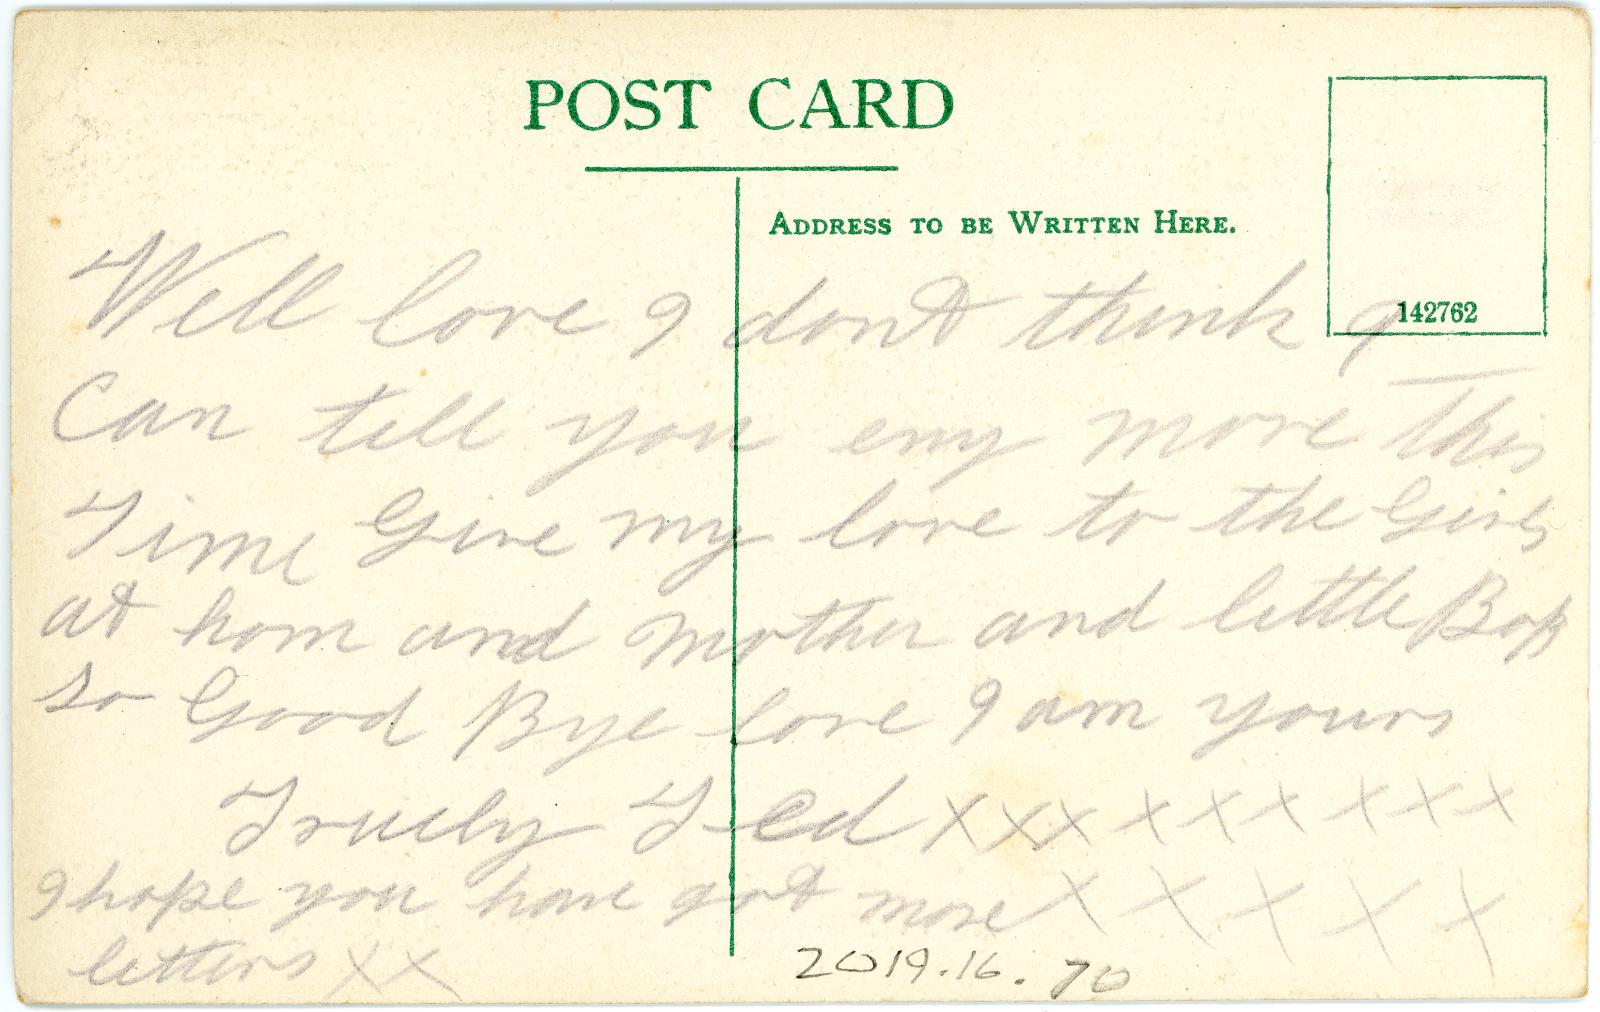 POST CARD
ADDRESS TO BE WRITTEN HERE.
142762
Well love I dont think I
Can tell you eny more This
Time Give my love to the Girls
at hom and Mother and little Boy
so Good Bye love I am yours
Truely Ted xxx x x x x x x
I hope you have got more x x x x x
letters xx
2019.16.70